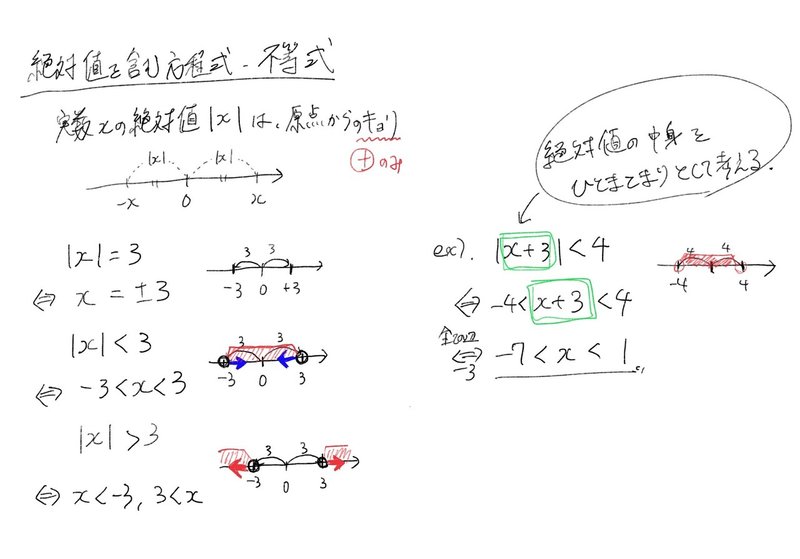 絶対値を含む方程式・不等式
実数xの絶対値|x|は、原点からのキョリ
⊕のみ
|x| |x|
-x 0 x
|x|=3
3 3
-3 0 +3
⇔ x=±3
|x|<3
3 3
-3 0 3
⇔ -3<x<3
|x|>3
3 3
-3 0 3
⇔ x<-3, 3<x
絶対値の中身を
ひとまとまりとして考える.
ex). |x+3|<4
4 4
-4 4
⇔ -4<x+3<4
⇔ -7<x<1
-3